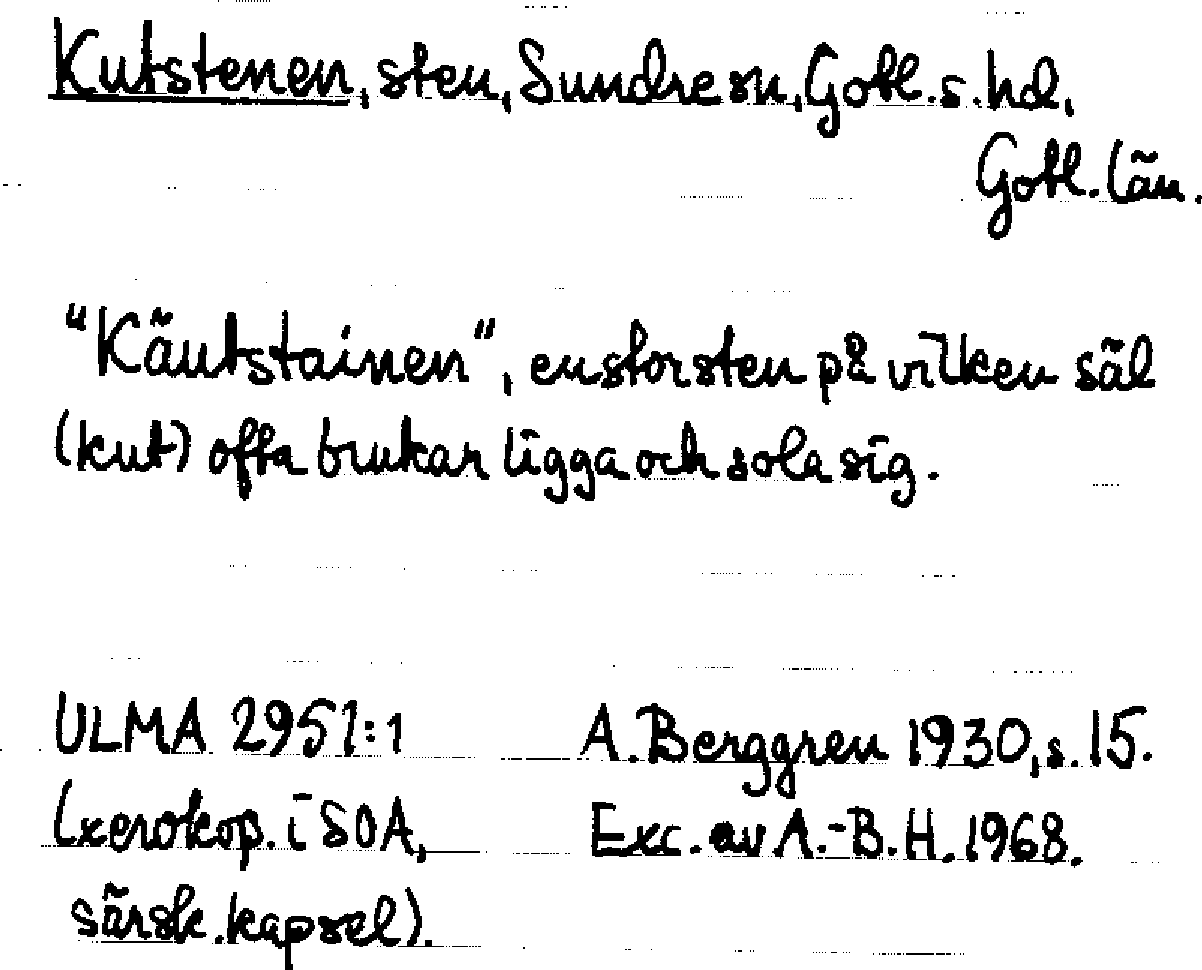 Kutstenen, sten, Sundre sn, Gotl. s. hd,
Gotl. län.
"Käutstainen", en stor sten på vilken säl
(kut) ofta brukar ligga och sola sig.
ULMA 2951:1 A. Berggren 1930, s. 15.
(xerokop. i SOA, Exc. av A.-B. H. 1968.
särsk. kapsel).